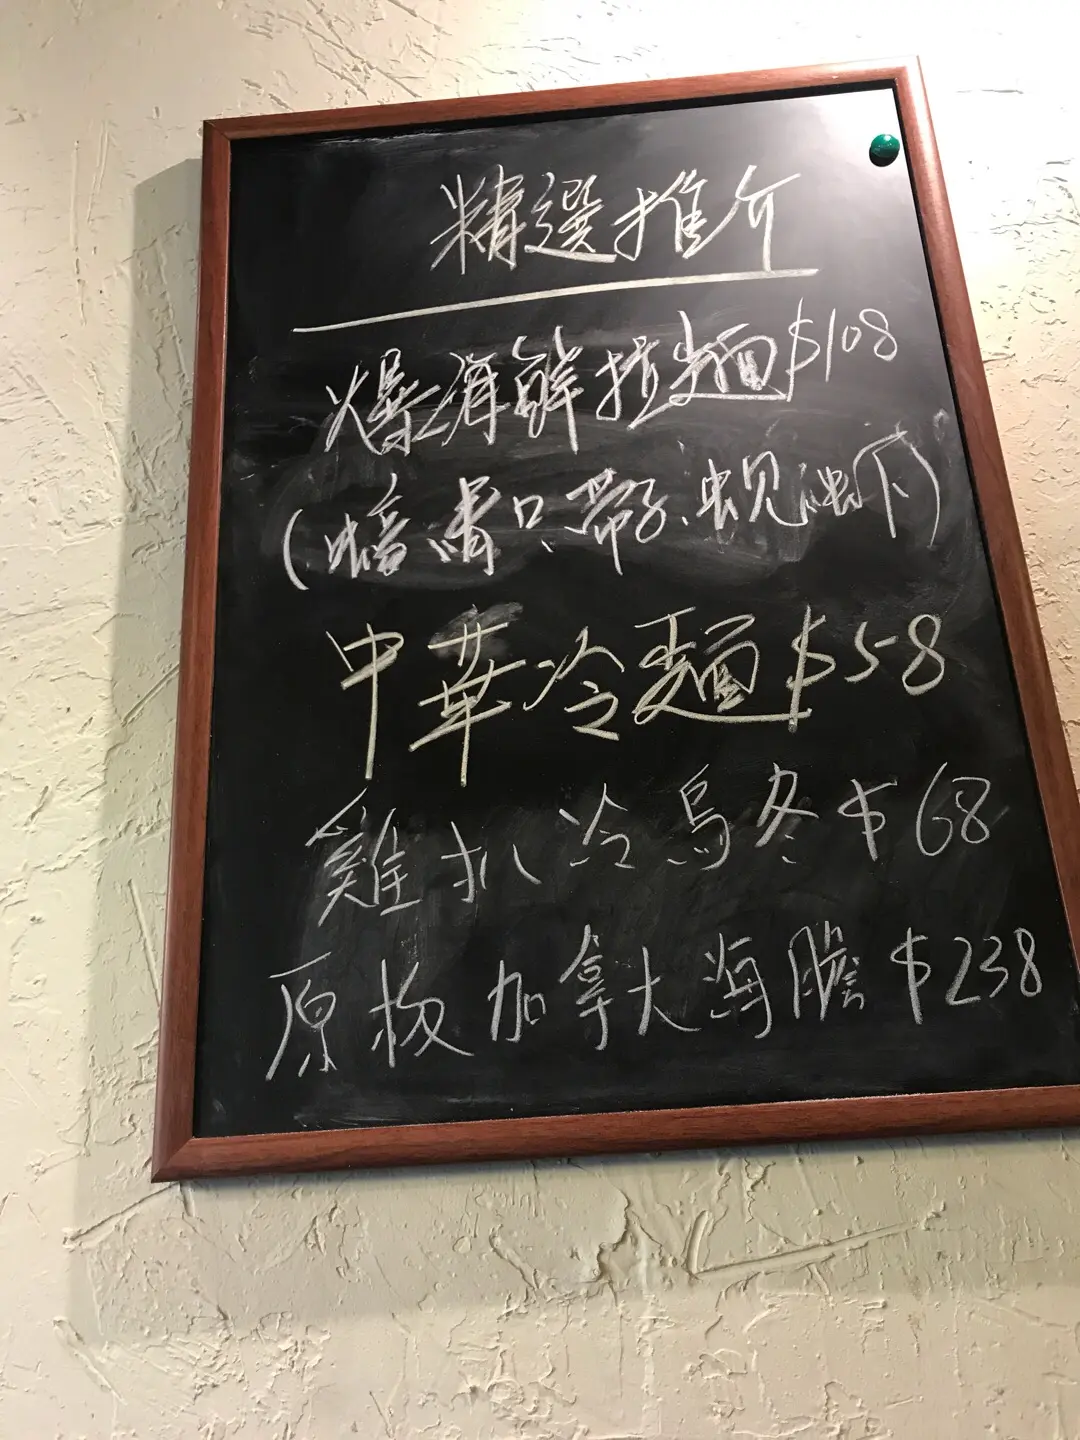 精選推介
爆海鮮拉麵 $108
(帶子、蜆
中華冷麵 $58
雞扒冷烏冬 $68
原板加拿大海膽 $238